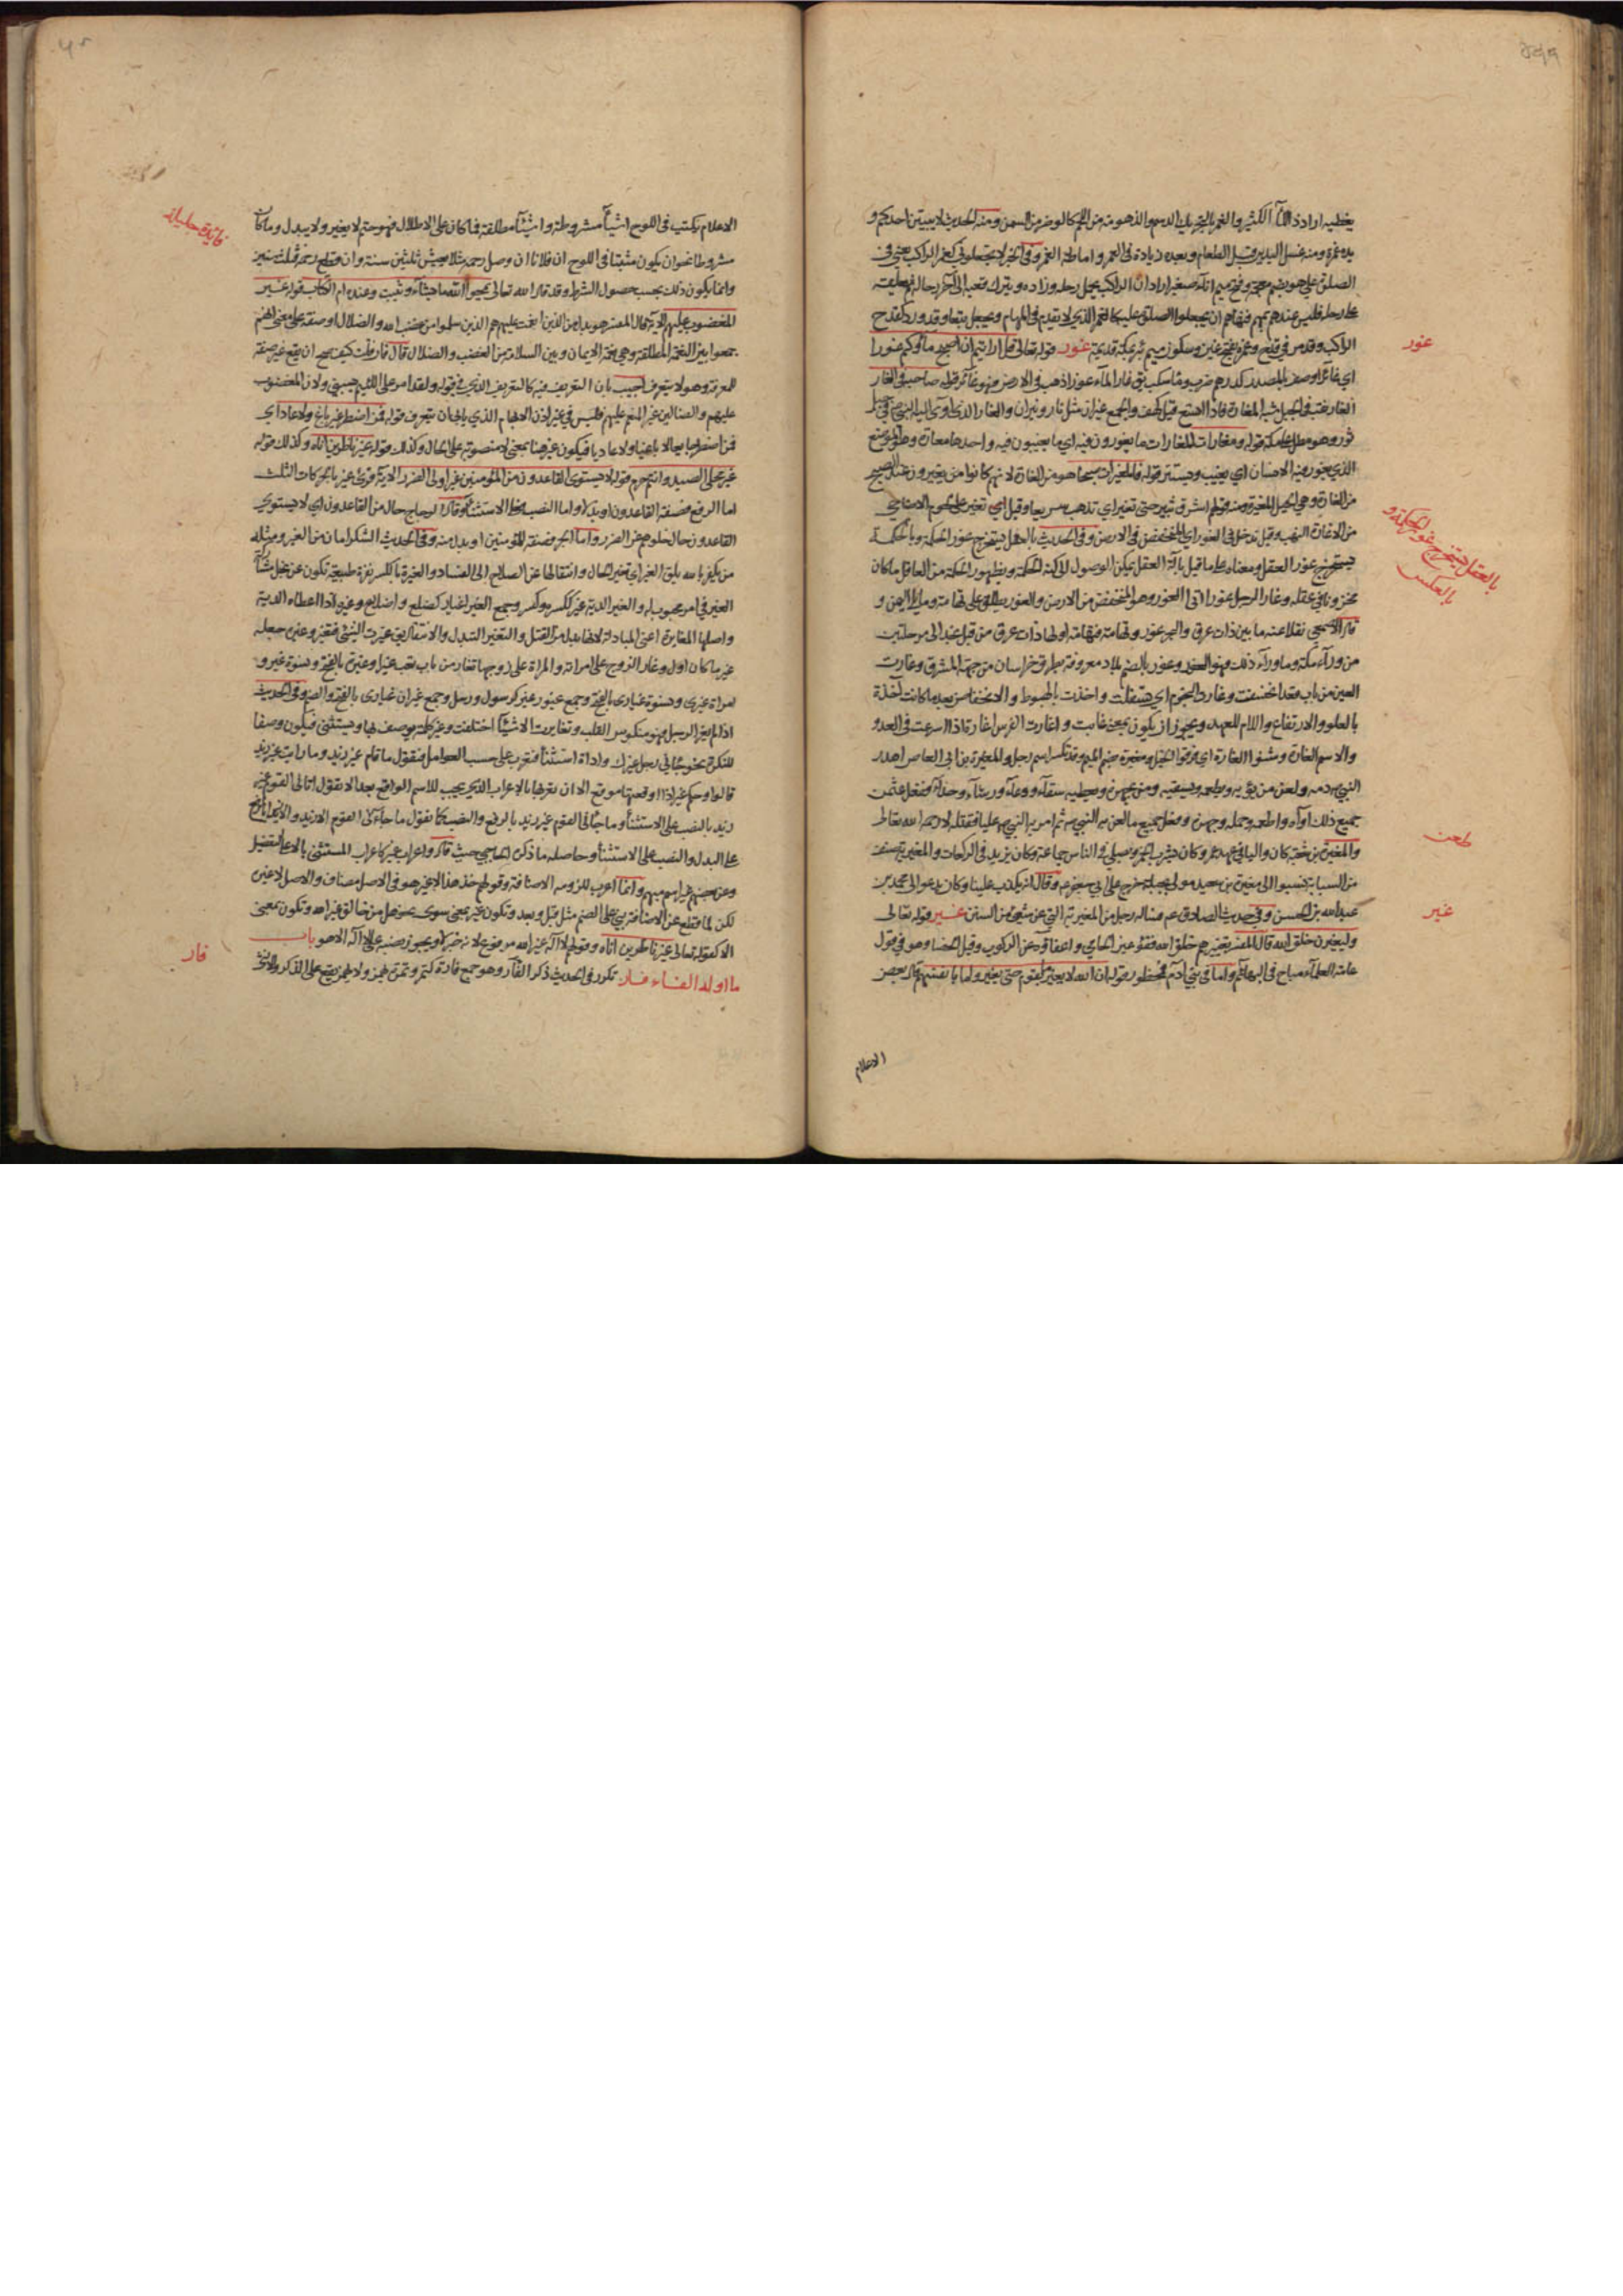 يغطيه اراد ذا الماء الكثير والغمر بالتحريك الدسم والذهومة من اللحم كالوضر من السمن ومنه الحديث لا يبيتن احدكم و
يده غمرة ومنه غسل اليدين قبل الطعام وبعده زيادة في العمر واماطة الغمر وفي الخبر لا تجعلوني كغمر الراكب يعني في
الصلوة علي هو بضم معجمة وفتح ميم اناء صغير اراد ان الراكب يحمل رحله وزاده ويترك قعبه الى آخر رحاله ثم يعلقه
على رحله فليس عندهم بمهم فنهاهم ان يجعلوا الصلوة عليه كالغمر الذي لا يقدم في المهام ويجعل تبعا وقد ورد كقدح
الراكب وقد مر في قدح وغمرة بفتح غين وسكون ميم بئر بمكة قديمة غور قوله تعالى قل ارايتم ان اصبح ماؤكم غورا
اي غائرا وصف بالمصدر كدرهم ضرب وماء سكب يق غار الماء غورا ذهب في الارض فهو غائر قوله صاحبه في الغار
الغار نقب في الجبل شبه المغارة فاذا اتسع قيل كهف والجمع غيران مثل نار ونيران والغار الذي اوى اليه النبي ص في جبل
ثور وهو مطل على مكة قوله ومغارات المغارات ما يغورون فيه اي ما يغيبون فيه واحدها مغارة وهو الموضع
الذي يغور فيه الانسان اي يغيب ويستتر قوله فالمغيرات صبحا هو من الغارة لانهم كانوا من يغيرون عند الصبح
من الغارة وهي الخيل المغيرة ومنه قولهم اشرق ثبير حتى تغير اي تذهب سريعا وقيل اي تغير على لحوم الاضاحي
من الاغارة النهب وقيل تدخل في الغور اي المنخفض في الارض وفي الحديث بالعقل يستخرج غور الحكمة وبالحكمة
يستخرج غور العقل ومعناه على ما قيل بالة العقل يمكن الوصول الى كنه الحكمة وبظهور الحكمة من العاقل ما كان
مخزونا في عقله وغار الرجل غورا اتى الغور وهو المنخفض من الارض والغور يطلق على تهامة وما يلي اليمن و
قال الاصمعي نقلا عنه ما بين ذات عرق والبحر غور وتهامة فتهامة اولها ذات عرق من قبل نجد الى مرحلتين
من وراء مكة وما وراء ذلك فهو الغور وغور بالضم بلاد معروفة بطرق خراسان من جهة المشرق وغارت
العين من باب قعد انخسفت وغارت النجوم اي تسفلت واخذت بالهبوط والانخفاض بعد ما كانت آخذة
بالعلو والارتفاع واللام للعهد ويجوز ان يكون بمعنى غابت واغارت الفرس اغارة اذا اسرعت في العدو
والاسم الغارة وشنوا الغارة اي فرقوا الخيل ومغيرة بضم الميم وقد تكسر اسم رجل والمغيرة بن ابي العاص اهدر
النبي ص دمه ولعن من يؤويه ويطعمه ويسقيه ومن يجهزه ويعطيه سقاء ووعاء ورشاء وحذاء ففعل عثمن
جميع ذلك آواه واطعمه وحمله وجهزه وفعل جميع ما لعن به النبي ص ثم امر به النبي ص عليا فقتله لا رحمه الله تعالى
والمغيرة بن شعبة كان واليا في عهد عمر وكان يشرب الخمر ويصلي في الناس جماعة وكان يزيد في الركعات والمغيرية صنف
من السبائية نسبوا الى مغيرة بن سعيد مولى بجيلة خرج على ابي جعفر ع وقال انه يكذب علينا وكان يدعو الى محمد بن
عبد الله بن الحسن وفي حديث الصادق ع فساله رجل من المغيرية التي عن شيئ من السنن غير قوله تعالى
وليغيرن خلق الله قال المفسر تغييرهم خلق الله فقؤ عين الحامي واعفاؤه عن الركوب وقيل الخصا وهو في قول
عامة العلماء مباح في البهائم واما في بني آدم فمحظور قوله ان الله لا يغير ما بقوم حتى يغيروا ما بانفسهم قال بعض
الاعلام
غور
بالعقل يستخرج غور الحكمة و
بالعكس
طعن
غير
الاعلام يكتب في اللوح اشياء مشروطة واشياء مطلقة فما كان على الاطلاق فهو حتم لا يغير ولا يبدل وما كان
مشروطا نحو ان يكون مثبتا في اللوح ان فلانا ان وصل رحمه مثلا يعيش ثلثين سنة وان قطع رحمه فثلث سنين
وانما يكون ذلك بحسب حصول الشرط وقد قال الله تعالى يمحو الله ما يشاء ويثبت وعنده ام الكتاب قوله غير
المغضوب عليهم الآية قال المفسر هو بدل من الذين انعمت عليهم هم الذين سلموا من غضب الله والضلال او صفة على معنى انهم
جمعوا بين النعمة المطلقة وهي نعمة الايمان وبين السلامة من الغضب والضلال قال فان قلت كيف صح ان يقع غير صفة
للمعرفة وهو لا يتعرف اجيب بان التعريف فيه كالتعريف الذي في قوله ولقد امر على اللئيم يسبني ولان المغضوب
عليهم والضالين غير المنعم عليهم فليس في غير اذن الابهام الذي يابى ان يتعرف قوله فمن اضطر غير باغ ولا عاد اي
فمن اضطر جايعا لا باغيا ولا عاديا فيكون غير هنا بمعنى لا منصوبة على الحال وكذلك قوله غير ناظرين اناه وكذلك قوله
غير محلي الصيد وانتم حرم قوله لا يستوي القاعدون من المؤمنين غير اولي الضرر الاية قرئ غير بالحركات الثلث
اما الرفع فصفة القاعدون او بدلا واما النصب فعلى الاستثناء وقال الزجاج حال من القاعدون اي لا يستوي
القاعدون حال خلوهم عن الضرر واما الجر فصفة للمؤمنين او بدل منه وفي الحديث الشكر امان من الغير ومثله
من يكفر بالله يلق الغير اي تغير الحال وانتقالها عن الصلاح الى الفساد والغيرة بالكسر نفرة طبيعية تكون عن بخل مشاركة
الغير في امر محبوب له والغير الدية غير ككسر وكسر وجمع الغير اغيار كضلع واضلاع وغيره اذا اعطاه الدية
واصلها المغايرة اعني المبادلة لانها بدل من القتل والتغير التبدل والانتقال يق غيرت الشيئ فتغير وغيره جعله
غير ما كان اول وغار الزوج على امراته والمراة على زوجها تغار من باب تعب غيرا وغيرة بالفتح ونسوة غير و
امراة غيرى ونسوة غيارى بالفتح وجمع غيور غير كرسول ورسل وجمع غيران غيارى بالفتح والضم وفي الحديث
اذا لم يغر الرجل فهو منكوس القلب وتغايرت الاشياء اختلفت وغير كلمة يوصف بها ويستثنى فيكون وصفا
للنكرة نحو جاءني رجل غيرك واداة استثناء فتعرب على حسب العوامل فتقول ما قام غير زيد وما رايت غير زيد
قالوا وحكم غير اذا اوقعتها موقع الا ان تعربها بالاعراب الذي يجب للاسم الواقع بعد الا تقول اتاني القوم غير
زيد بالنصب على الاستثناء وما جاءني القوم غير زيد بالرفع والنصب كما تقول ما جاءني القوم الا زيد والا زيدا بالرفع
على البدل والنصب على الاستثناء وحاصله ما ذكره الحاجبي حيث قال واعراب غير كاعراب المستثنى بالا على التفصيل
وعن بعضهم غير اسم مبهم وانما اعرب للزومه الاضافة وقولهم خذ هذا لا غير هو في الاصل مضاف والاصل لا غيره
لكن لما قطع عن الاضافة بني على الضم مثل قبل وبعد وتكون غير بمعنى سوى نحو هل من خالق غير الله وتكون بمعنى
الا كقوله تعالى غير ناظرين اناه وقولهم لا اله غير الله مرفوع لانه خبر لا ويجوز نصبه على لا اله الا هو باب
ما اوله الفاء فار تكرر في الحديث ذكر الفار وهو جمع فارة كتمر وتمرة يهمز ولا يهمز يقع على الذكر والانثى
فائدة جليلة
فار